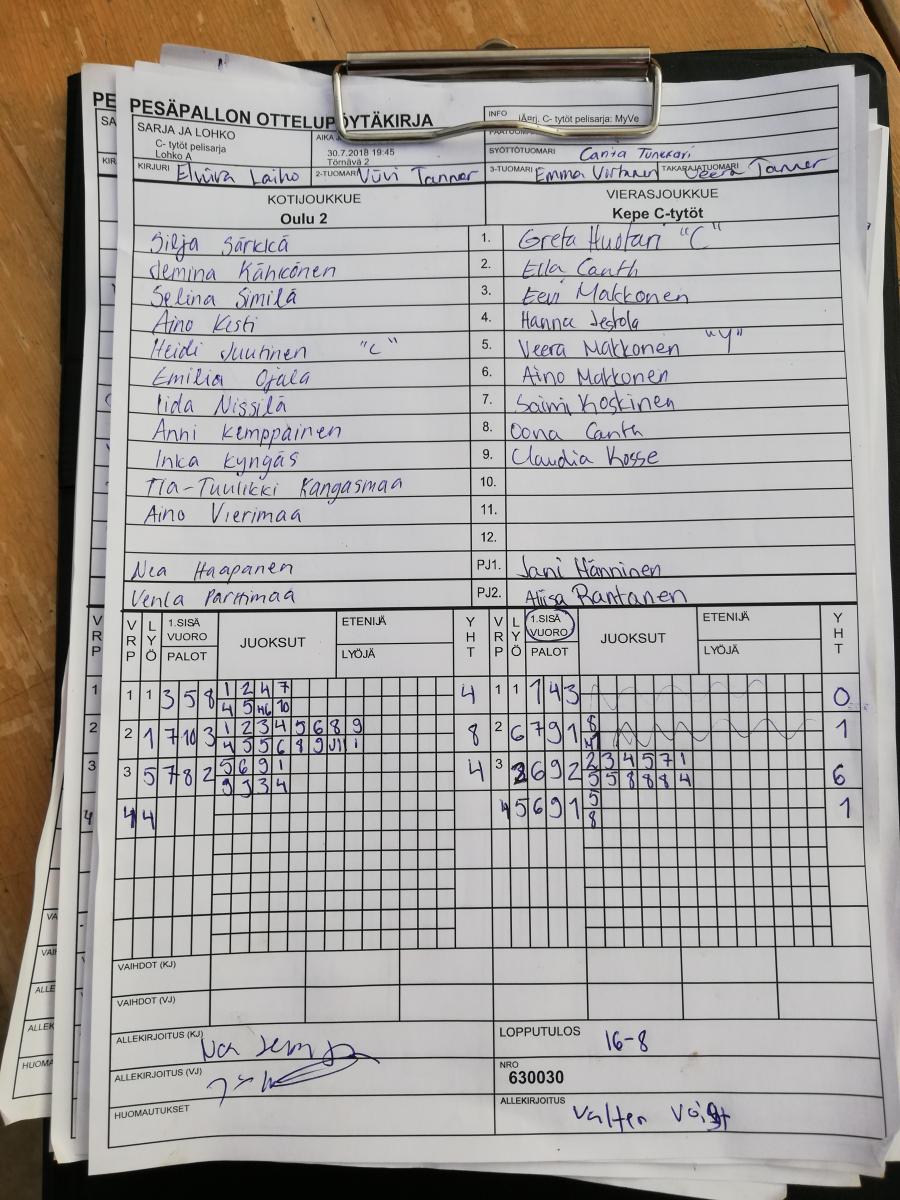 PESÄPALLON OTTELUPÖYTÄKIRJA
SARJA JA LOHKO
C- tytöt pelisarja
Lohko A
30.7.2018 19:45
Törnävä 2
INFO C- tytöt pelisarja: MyVe
SYÖTTÖTUOMARI Carita Tunkkari
KIRJURI Elviira Laiho
2-TUOMARI Viivi Tanner
3-TUOMARI Emma Virtanen
TAKARAJATUOMARI Veera Tanner
KOTIJOUKKUE
Oulu 2
VIERASJOUKKUE
Kepe C-tytöt
Silja Särkkä 1. Greta Huotari "C"
Jemina Kähkönen 2. Ella Canth
Selina Similä 3. Eevi Makkonen
Aino Kesti 4. Hanna Jestola
Heidi Juutinen "C" 5. Veera Makkonen "Y"
Emilia Ojala 6. Aino Makkonen
Iida Nissilä 7. Saimi Koskinen
Anni Kemppainen 8. Oona Canth
Inka Kyngäs 9. Claudia Kosse
Tia-Tuulikki Kangasmaa 10.
Aino Vierimaa 11.
12.
Nea Haapanen PJ1. Jani Hänninen
Venla Parttimaa PJ2. Aliisa Rantanen
VRP LYÖ 1.SISÄ VUORO PALOT JUOKSUT ETENIJÄ LYÖJÄ YHT VRP LYÖ 1.SISÄ VUORO PALOT JUOKSUT ETENIJÄ LYÖJÄ YHT
1 1 3 5 8 1 2 4 7 4 1 1 1 4 3 0
4 5 10
2 1 7 10 3 1 2 3 4 5 6 8 9 8 2 6 7 9 1 8 1
4 5 5 6 8 9 11 1
3 5 7 8 2 5 6 9 1 4 3 2 6 9 2 2 3 4 5 7 1 6
9 9 3 4 5 5 8 8 8 4
4 4 4 5 6 9 1 5 1
8
VAIHDOT (KJ)
VAIHDOT (VJ)
ALLEKIRJOITUS (KJ)
LOPPUTULOS 16-8
ALLEKIRJOITUS (VJ)
NRO
630030
HUOMAUTUKSET
ALLEKIRJOITUS Valtteri Voigt